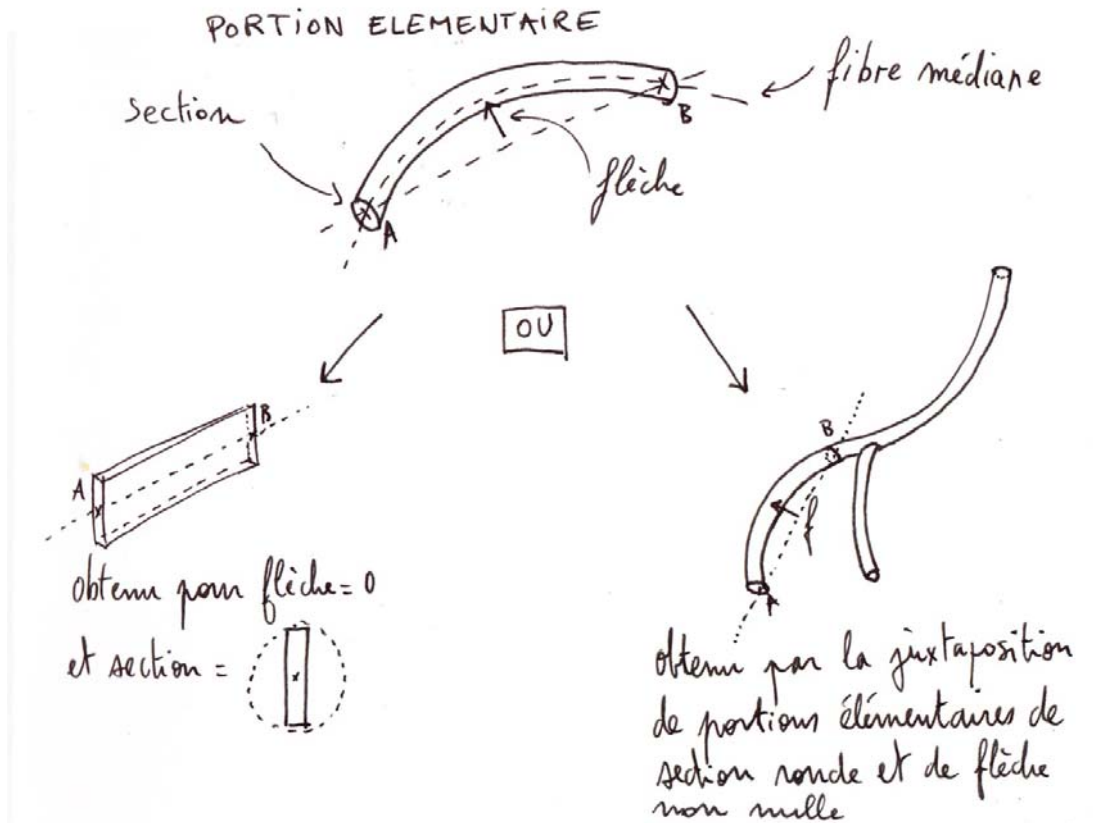 PORTION ELEMENTAIRE
section
fibre médiane
B
flèche
A
OU
B
A
B
f
A
obtenu pour flèche = 0
et section =
obtenu par la juxtaposition
de portions élémentaires de
section ronde et de flèche
non nulle